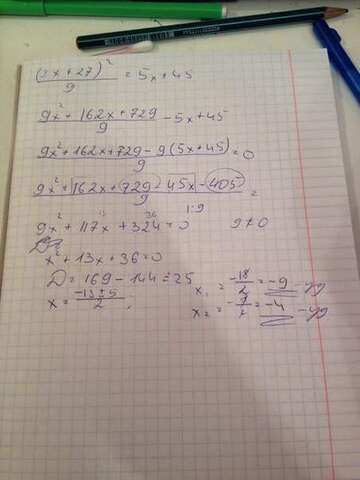 (3x+27)² / 9 = 5x+45
9x²+162x+729 / 9 - 5x+45
9x²+162x+729-9(5x+45) / 9 = 0
9x²+162x+729-45x-405 / 9 =
1:9
9x²+117x+324=0 9≠0
13 36
x²+13x+36=0
D=169-144=25
x= -13±5 / 2 ;
x₁= -18/2 = -9
x₂= = -4